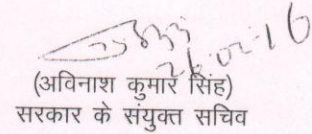 26-02-16
(अविनाश कुमार सिंह)
सरकार के संयुक्त सचिव